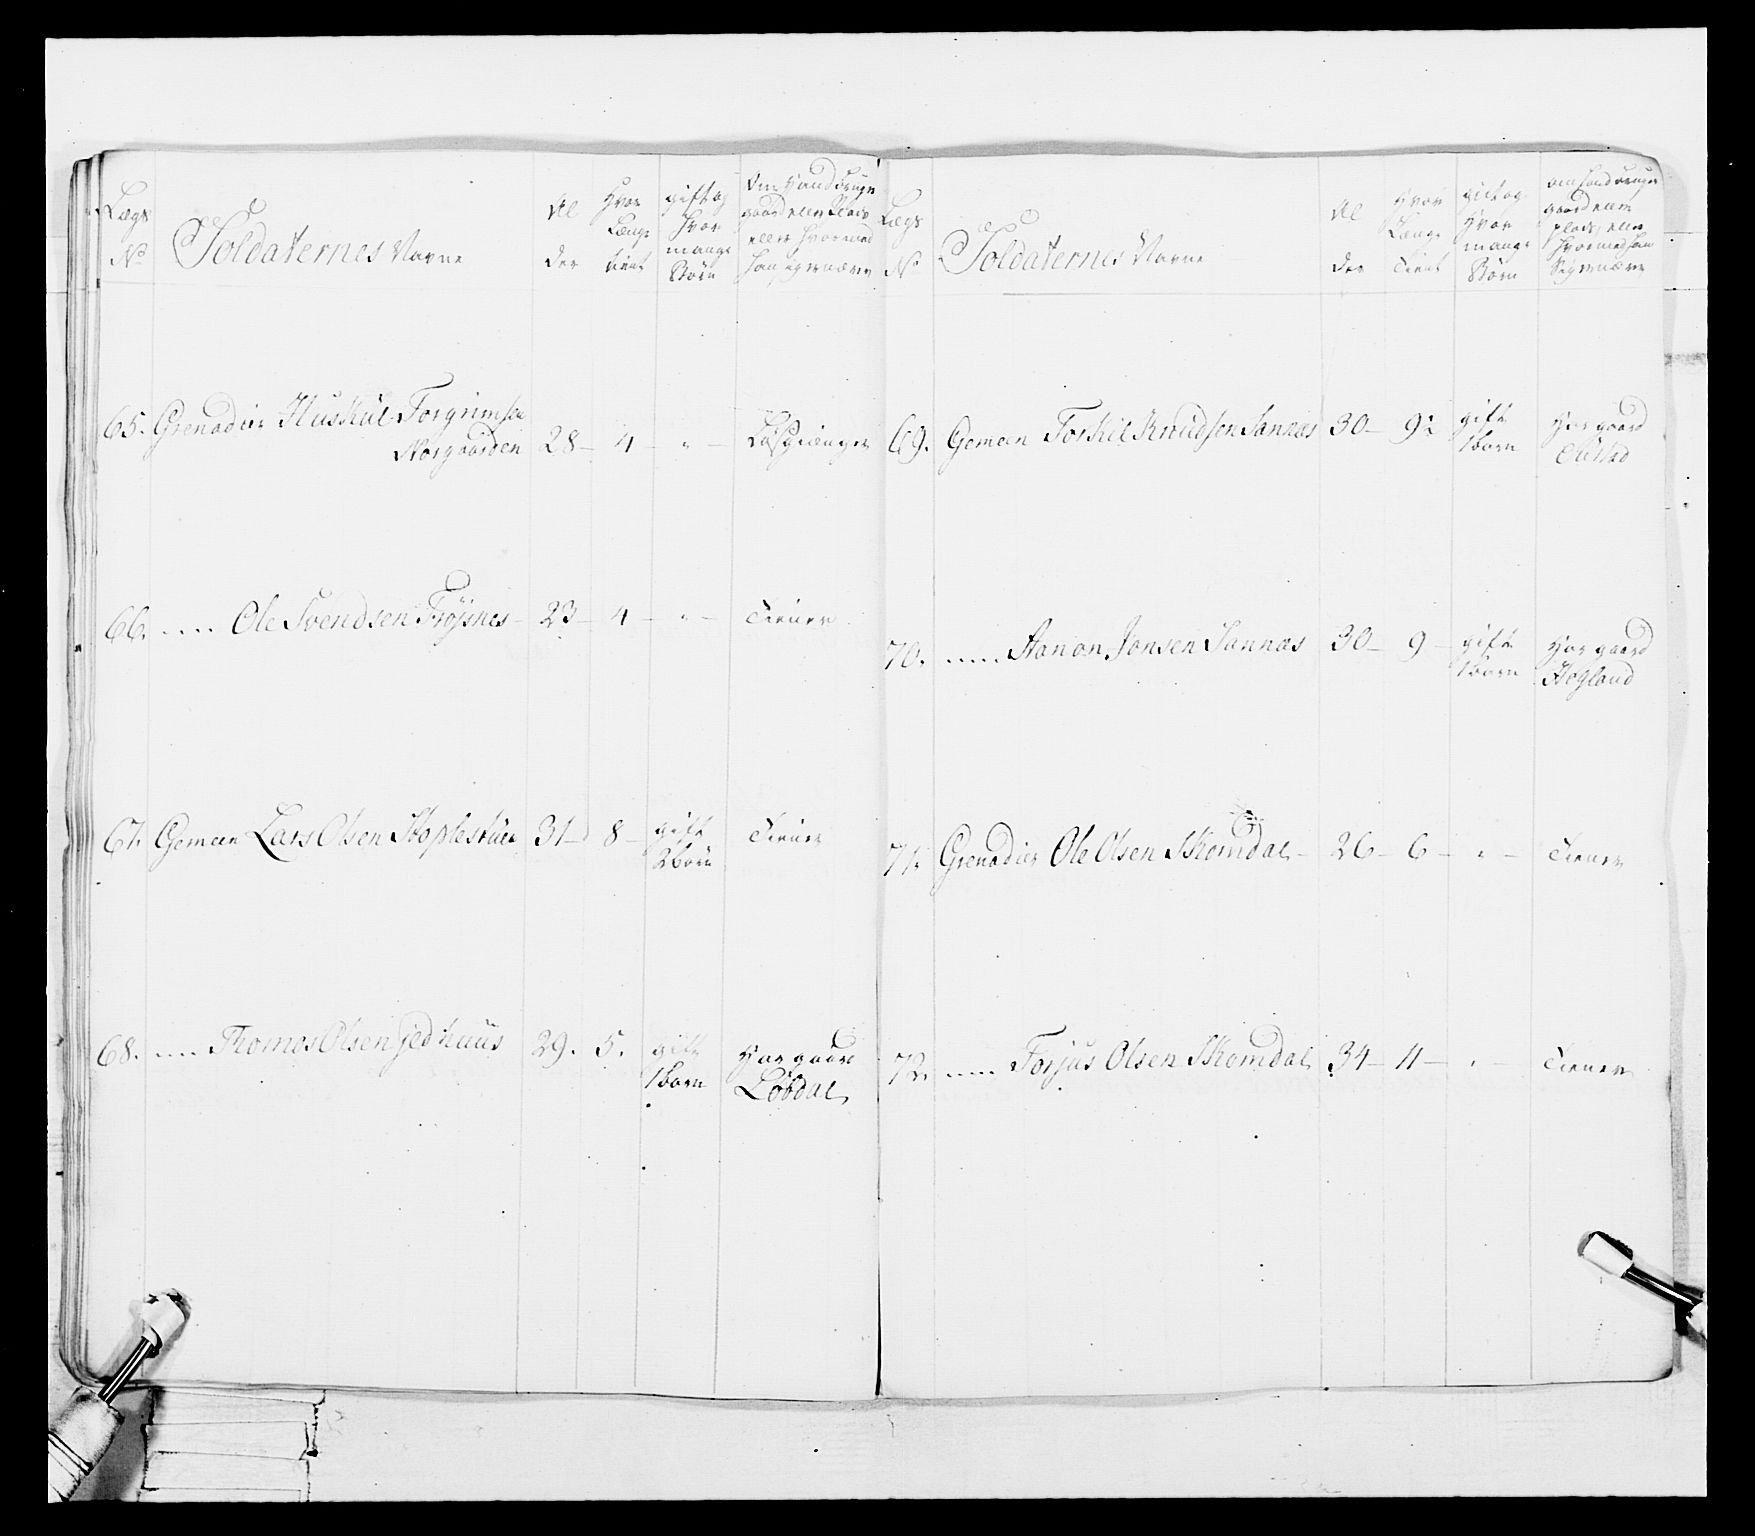 Lægs
No
Soldaternes Navne
Al
der
Hvor
Længe
tient
gift og
hvor
mange
Børn
Om Hand bruger
gaard eller Plads
eller hvormed
han sig ernærer
65. Grenadier Huskul Torgrimsen
Norgaarden 28 – 4 – " – Løsgiænger
66. ---- Ole Svendsen Frøysnes – 23 – 4 – " – Tiener
67. Gemeen Lars Olsen Stoplestuen 31 – 8 – gift
2 Børn
Tiener
68. ---- Thomas Olsen Jedhuus 29. 5. gift
1 barn
Har gaard
Løbdal
Lægs
No
Soldaternes Navne
Al
der
Hvor
Længe
Tient
gift og
Hvor
mange
Børn
om hand bruger
gaard eller
plads, eller
hvormed han
Sig ernærer
69. Gemeen Torkil Knudsen Sannas 30 – 9½ gift
1 barn
Har gaard
70. ---- Aanon Jonsen Sannas 30 – 9 – gift
1 barn
Har gaard
Hegland
71. Grenadier Ole Olsen Skomdal – 26 – 6 – " – Tiener
72. ---- Torjus Olsen Skomdal 34 – 11 – " – Tiener